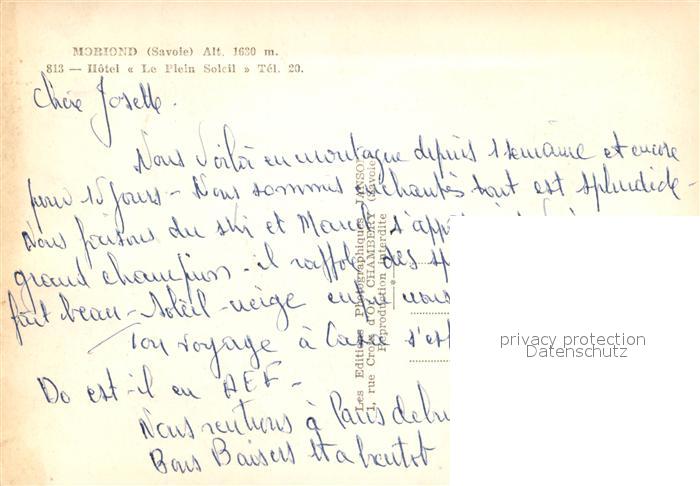 MORIOND (Savoie) Alt. 1630 m.
813 — Hôtel « Le Plein Soleil » Tél. 20.
Chère Josette.
Nous voilà en montagne depuis 1 semaine et encore
pour 15 jours - Nous sommes enchantés tout est splendide -
Nous faisons du ski et
grand champion - il raffole des
fait beau - soleil - neige enfin nous
Ton voyage à Casa s'est
Do est-il en AEF -
Nous rentrons à Paris
Bons Baisers et a bientot
Les Editions Photographiques JANSOL
1, rue Croix d'Or, CHAMBÉRY (Savoie)
Reproduction interdite
privacy protection
Datenschutz